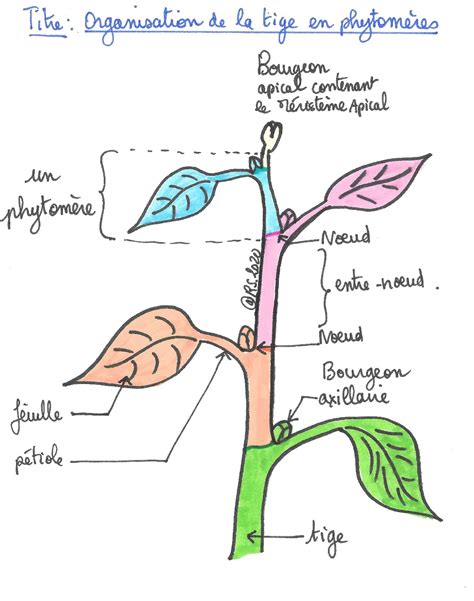 Titre: Organisation de la tige en phytomères
Bourgeon
apical contenant
le Méristème Apical
un
phytomère
Noeud
entre-noeud.
@P.S.2020
Noeud
Bourgeon
axillaire
feuille
pétiole
tige